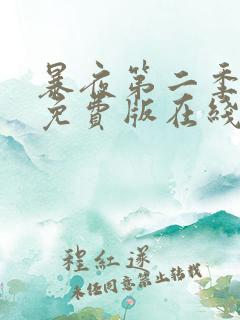 暴夜第二季
免費版在綫
程紅遂
未经同意禁止转载